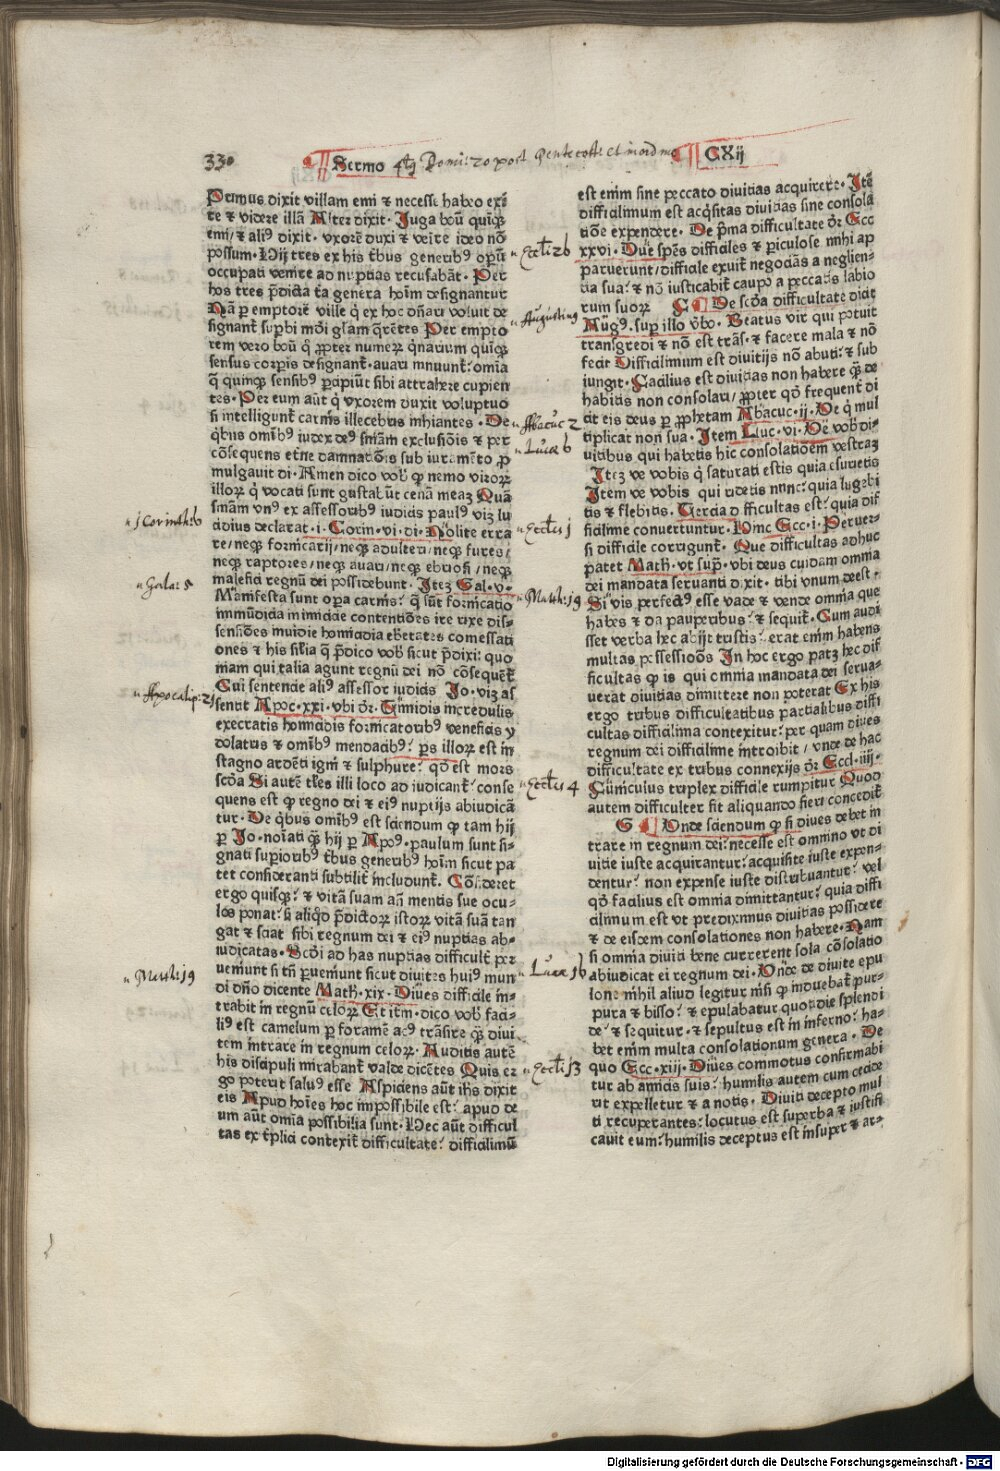 330
Sermo Domi: 20 post Pentecoste CXij
Primus dixit villam emi ⁊ necesse habeo exi
re ⁊ videre illã Alter dixit. Juga boũ quiqꝫ
emi/ ⁊ aliꝰ dixit. vxorẽ duxi ⁊ veĩre ideo nõ
possum. Hij tres ex his tbus generibꝰ opũ
occupati venire ad nuptias recusabãt. Per
hos tres p̃dicta t̃a genera hoĩm designantur
Nã p emptorẽ ville q̃ ex hoc dñari voluit de
signant supbi mõi glam q̃rẽtes Per empto
rem vero boũ q̃ ꝓpter numerꝝ q̃narium quiqꝫ
sensus corpis designant. auari innuunt. omĩa
q̃ quinqꝫ sensibꝰ papiũt sibi attrahere cupien
tes. Per eum aũt q̃ vxorem duxit voluptuo
si intelligunt carnis illecebris inhiantes. De
q̃bus omĩbꝰ iudex deꝰ sñiam exclusiõis ⁊ per
cõsequens etẽne damnatõis sub iuramẽto ꝓ
mulgauit di. Amen dico vobꝰ ꝙ nemo virorꝝ
illorꝝ q̃ vocati sunt gustabũt cenã meaꝫ Quã
sñiam vnꝰ ex assessoribꝰ iudicis paulꝰ viꝫ lu
cidius declarat. i. Corin. vi. di. Nolite erra
re/ neqꝫ fornicarij/ neqꝫ adulteri/ neqꝫ fures/
neqꝫ raptores/ neqꝫ auari/ neqꝫ ebriosi/ neqꝫ
malefici regnũ dei possidebunt. Iteꝫ Gal. v.
Manifesta sunt oƥa carnis? q̃ sũt fornicatio
immũdicia inimicicie contentiões ire rixe dis-
sensiões inuidie homicidia ebrietates comessati
ones ⁊ his sil̃ia q̃ p̃dico vobꝰ sicut p̃dixi: quo
niam qui talia agunt regnũ dei nõ cõsequẽt
Cui sentencie aliꝰ assessor iudicis Jo. viꝫ as
sentit Apoc. xxi. vbi dr̃. Timidis incredulis
execratis homicidis fornicatoribꝰ veneficis y
dolatris ⁊ omĩbꝰ mendacibꝰ? ps illorꝝ est in
stagno ardẽti igni ⁊ sulphure? qd̃ est mors
scd̃a Si autẽ tres illi loco ad iudicant? conse
quens est ꝙ regno dei ⁊ eiꝰ nuptijs abiudicã
tur. De q̃bus omĩbꝰ est sciendum ꝙ tam hij
p Jo. noĩati q̃ꝫ hij p Apoꝰ. paulum sunt si-
gnati supioribꝰ tbus generibꝰ hoĩm sicut pa
tet consideranti subtilit̃ includunt̃. Cõsideret
ergo quisqꝫ? ⁊ vitã suam añ mentis sue ocu-
los ponat? si aliqd̃ p̃dictorꝝ istorꝝ vitã suã tan
gat ⁊ sciat sibi regnum dei ⁊ eiꝰ nuptias ab-
iudicatas. Scd̃i ad has nuptias difficult̃ per
ueniunt si tñ pueniunt sicut diuites huiꝰ mun
di dño dicente Math. xix. Diues difficile in-
trabit in regnũ celorꝝ Et itm̃. dico vobꝰ faci-
liꝰ est camelum p foramẽ acꝰ trãsire q̃ꝫ diui
tem intrare in regnum celorꝝ. Auditis autẽ
his discipuli mirabant̃ valde dicẽtes Quis er
go poterit saluꝰ esse Aspiciens aũt ihs̃ dixit
eis Apud hoĩes hoc impossibile est? apud de
um aũt omĩa possibilia sunt. Hec aũt difficul
tas ex t̃plici contexit̃ difficultate? difficilimũ
j Corinth: 6
Galat: 5
Apocalip: 21
Math: 19
est enim sine peccato diuitias acquirere. Itẽ
difficilimum est acq̃sitas diuitias sine consola
tiõe expendere. De p̃ma difficultate dr̃. Ecc
xxvi. Due sp̃es difficiles ⁊ periculose mihi ap
paruerunt/ difficile exuit̃ negociãs a negligen-
tia sua? ⁊ nõ iustificabit̃ caupo a peccatis labio
rum suorꝝ De scd̃a difficultate dicit
Augꝰ. sup illo vbo. Beatus vir qui potuit
transgredi ⁊ nõ est trãs. ⁊ facere mala ⁊ nõ
fecit Difficilimum est diuitijs nõ abuti? ⁊ sub
iungit. Facilius est diuitias non habere q̃ꝫ de
habitis non consolari/ ꝓpter qd̃ frequent̃ di
cit eis deus p ꝓphetam Abacuc. ij. Ve q̃ mul
tiplicat non sua. Item Luc. vi. Ve vobꝰ di-
uitibus qui habetis hic consolationem vestraꝫ
Iteꝫ ve vobis q̃ saturati estis quia esurietis
Item ve vobis qui ridetis nunc? quia lugebi
tis ⁊ flebitis. Tercia difficultas est? quia dif
ficilime conuertuntur. Hinc Ecc. i. Peruer-
si difficile corrigunt̃. Que difficultas adhuc
patet Math. vt supͣ. vbi deus cuidam omnia
dei mandata seruanti dixit. tibi vnum deest.
Si vis perfectꝰ esse vade ⁊ vende omnia que
habes ⁊ da pauperibus? ⁊ sequit̃. Cum audi
sset verba hec abijt tristis? erat enim habens
multas possessiões In hoc ergo patꝫ hec dif
ficultas ꝙ is qui omnia mandata dei serua-
uerat diuitias dimittere non poterat Ex his
ergo tribus difficultatibus partialibus diffi
cultas difficilima contexitur? per quam diues
regnum dei difficilime introibit/ vnde de hac
difficultate ex tribus connexijs dr̃ Eccl. iiij.
Funiculus triplex difficile rumpitur Quod
autem difficulter fit aliquando fieri concedit̃
G Unde sciendum ꝙ si diues debet in
trare in regnum dei? necesse est omnino vt di
uitie iuste acquirantur? acquisite iuste expen-
dentur? non expense iuste distribuantur? vel
qd̃ facilius est omnia dimittantur? quia diffi
cilimum est vt prediximus diuitias possidere
⁊ de eisdem consolationes non habere. Nam
si omnia diuiti bene currerent sola cõsolatio
abiudicat ei regnum dei. Unde de diuite epu
lone nihil aliud legitur nisi ꝙ induebat̃ pur-
pura ⁊ bisso? ⁊ epulabatur quotidie splendi
de? ⁊ sequitur. ⁊ sepultus est in inferno? ha-
bet enim multa consolationum genera. De
quo Ecc. xiij. Diues commotus confirmabi
tur ab amicis suis? humilis autem cum cecide
rit expelletur ⁊ a notis. Diuiti decepto mul
ti recuperantes? locutus est superba ⁊ iustifi
cauit eum? humilis deceptus est insuper ⁊ ar-
Eccl: 26
Augustinꝰ
Abacuc 2
Lucæ 6
Eccles j
Math: 19
Eccles 4
Lucæ 16
Eccl: 13
Digitalisierung gefördert durch die Deutsche Forschungsgemeinschaft - DFG